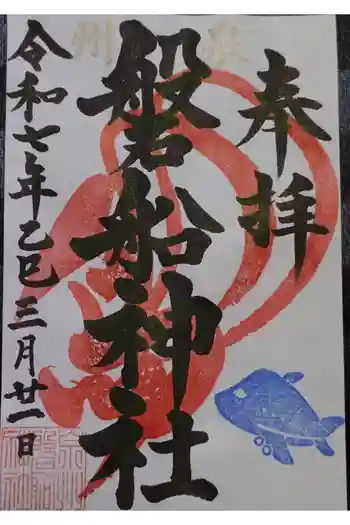 奉拝
磐船神社
令和七年乙巳三月廿一日